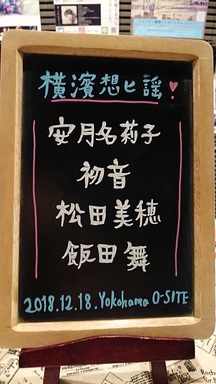 横濱想ヒ謡♥
安月名莉子
初音
松田美穂
飯田舞
2018.12.18.Yokohama O-SITE